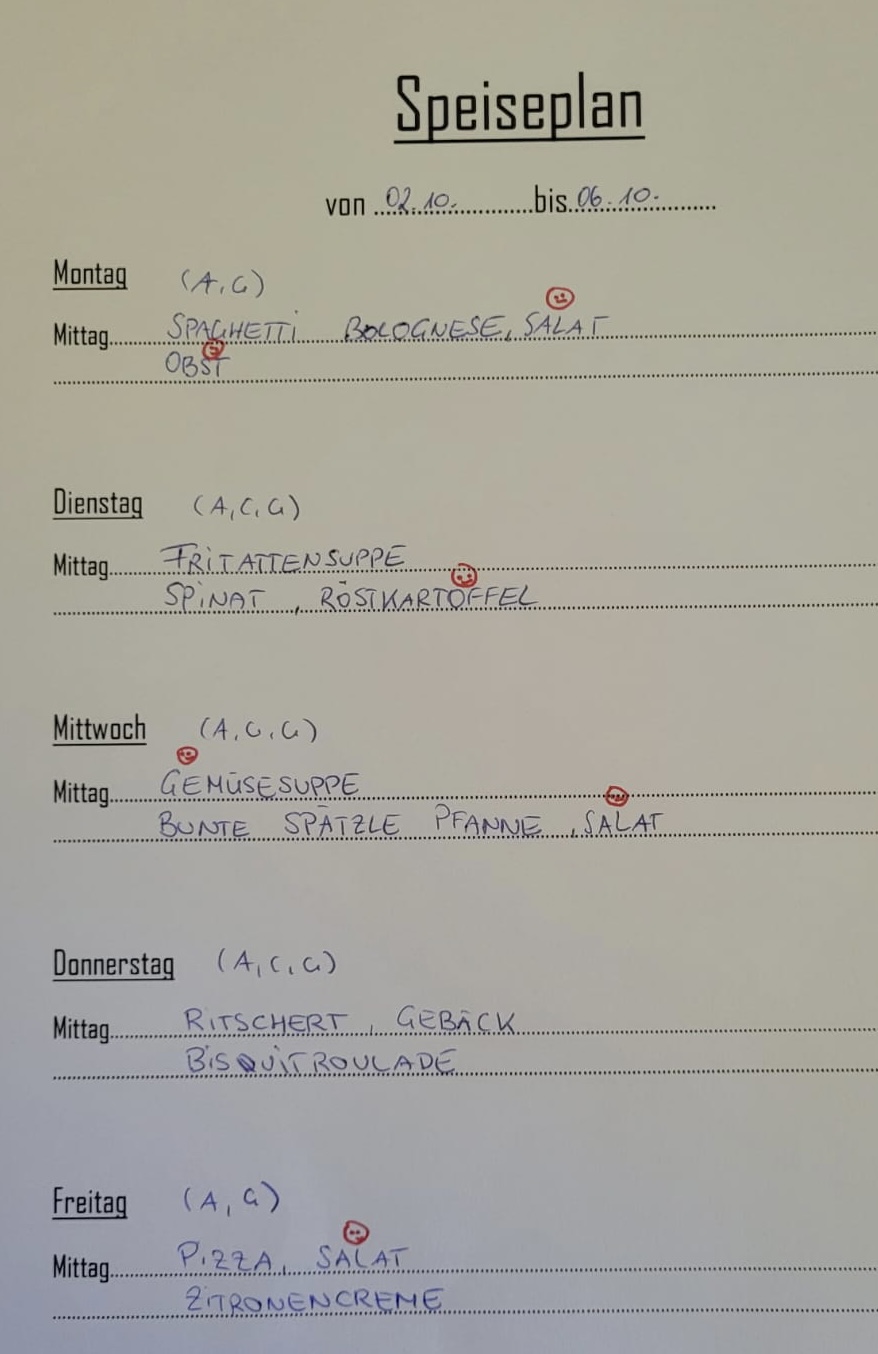 Speiseplan
von 02.10. bis 06.10.
Montag (A, G)
Mittag SPAGHETTI BOLOGNESE, SALAT
OBST
Dienstag (A, C, G)
Mittag FRITATTENSUPPE
SPINAT, RÖSTKARTOFFEL
Mittwoch (A, C, G)
Mittag GEMÜSESUPPE
BUNTE SPÄTZLE PFANNE, SALAT
Donnerstag (A, C, G)
Mittag RITSCHERT, GEBÄCK
BISQUITROULADE
Freitag (A, G)
Mittag PIZZA, SALAT
ZITRONENCREME